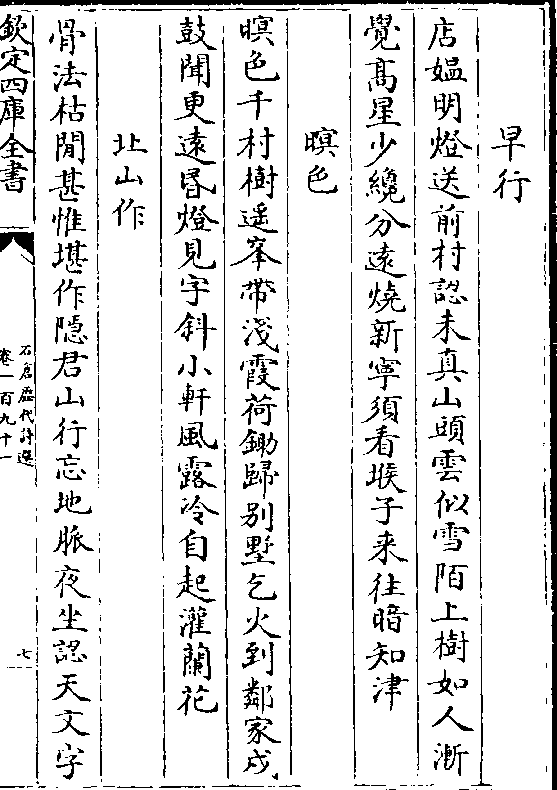 早行
店媪明燈送前村認未真山頭雲似雪陌上樹如人漸
覺髙星少纔分逺燒新寧須看堠子来往暗知津
暝色
暝色千村樹遥峯帶淺霞荷鋤歸别墅乞火到鄰家戍
鼓聞更遠昬燈見字斜小軒風露冷自起灌蘭花
北山作
骨法枯閒甚惟堪作隠君山行忘地脈夜坐認天文字
欽定四庫全書
石倉歴代詩選
卷一百九十一
七